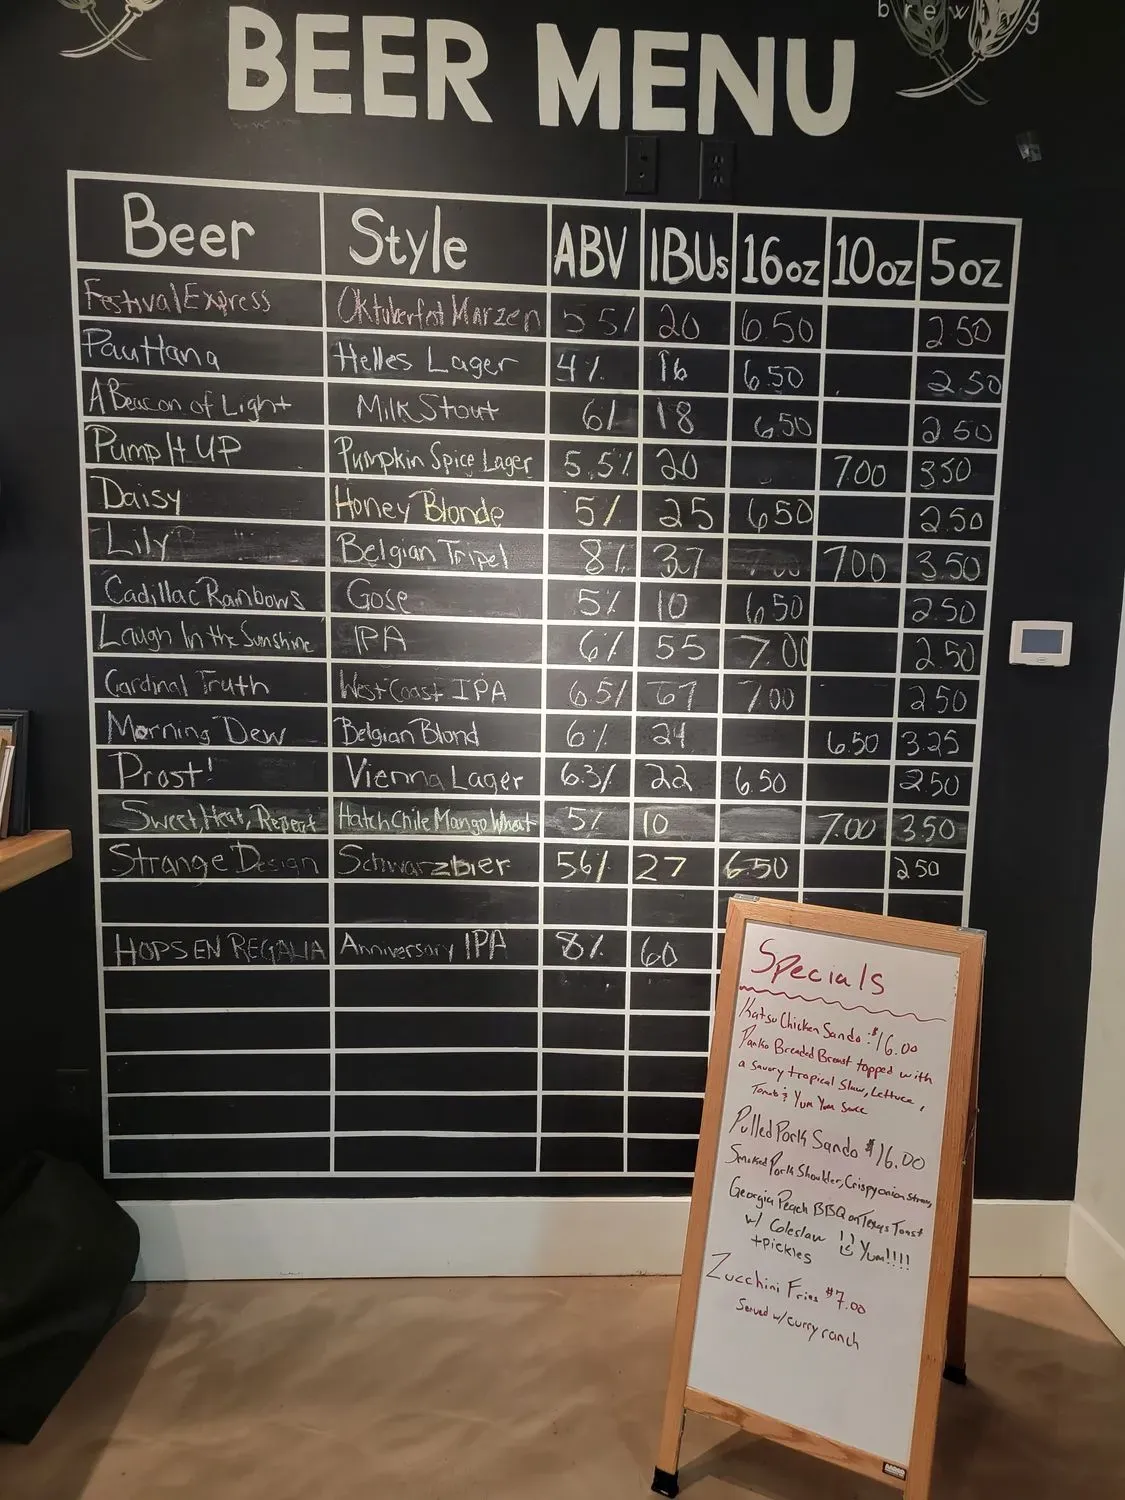 brewing
BEER MENU
Beer Style ABV IBUs 16oz 10oz 5oz
Festival Express Oktoberfest Marzen 5.5% 20 6.50 2.50
Pau Hana Helles Lager 4% 16 6.50 2.50
A Beacon of Light Milk Stout 6% 18 6.50 2.50
Pump It UP Pumpkin Spice Lager 5.5% 20 7.00 3.50
Daisy Honey Blonde 5% 25 6.50 2.50
Lily Belgian Tripel 8% 37 7.00 3.50
Cadillac Rainbows Gose 5% 10 6.50 2.50
Laugh In the Sunshine IPA 6% 55 7.00 2.50
Cardinal Truth West Coast IPA 6.5% 67 7.00 2.50
Morning Dew Belgian Blond 6% 24 6.50 3.25
Prost! Vienna Lager 6.3% 22 6.50 2.50
Sweet, Heat, Repeat Hatch Chile Mango Wheat 5% 10 7.00 3.50
Strange Design Schwarzbier 5.6% 27 6.50 2.50
HOPS EN REGALIA Anniversary IPA 8% 60
Specials
Katsu Chicken Sando: $16.00
Panko Breaded Breast topped with
a savory tropical Slaw, Lettuce,
Tomato & Yum Yum Sauce
Pulled Pork Sando $16.00
Smoked Pork Shoulder, Crispy onion straws,
Georgia Peach BBQ on Texas Toast
w/ Coleslaw !! Yum!!!!
+pickles
Zucchini Fries $7.00
Served w/ curry ranch